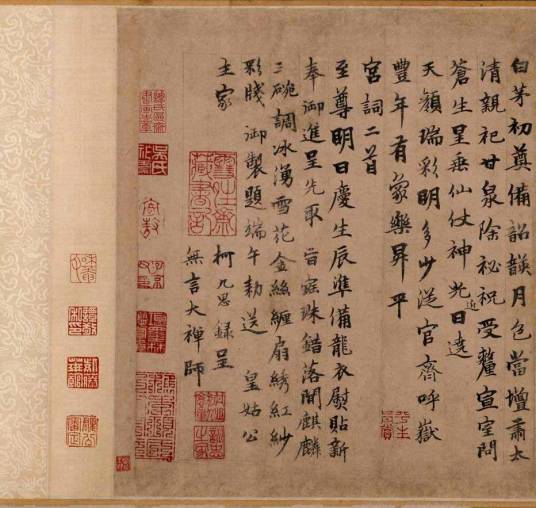 白茅初奠備韶韺月色當壇肅太
清親祀甘泉除祕祝受釐宣室問
蒼生星垂仙仗神光近日逺
天顔瑞彩明多少從官齊呼嶽
豐年有象樂昇平
宮詞二首
至尊明日慶生辰準備龍衣熨貼新
奉御進呈先取旨寶珠錯落間麒麟
二碗調冰湧雪花金絲纏扇綉紅紗
彩牋御製題端午勅送皇姑公
主家
柯九思錄呈
無言大禪師